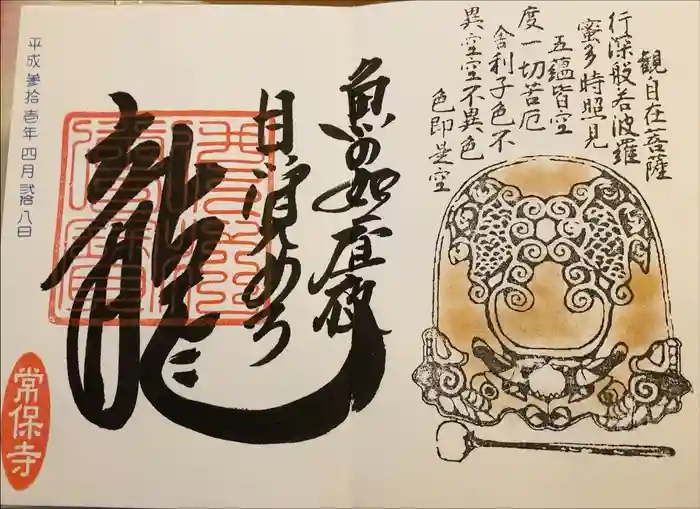 観自在菩薩
行深般若波羅
蜜多時照見
五蘊皆空
度一切苦厄
舎利子色不
異空空不異色
色即是空
魚の如昼夜
龍
平成参拾壱年四月弐拾八日
常保寺